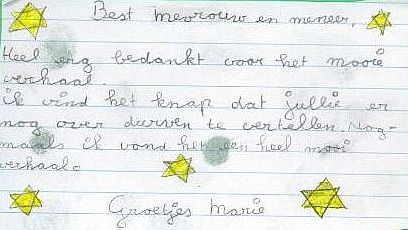 Best mevrouw en meneer,
Heel erg bedankt voor het mooie
verhaal.
ik vind het knap dat jullie er
nog over durven te vertellen. Nog-
maals ik vond het een heel mooi
verhaal.
Groetjes Marie